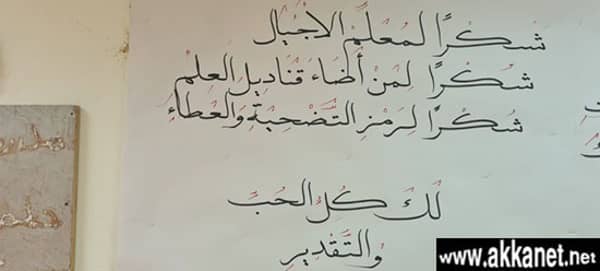 شُكْرًا لمُعلِّمِ الاجْيَال
شُكْرًا لِمَنْ أضَاءَ قَنَادِيلَ العِلْمِ
شُكْرًا لِرَمْزِ التَّضْحِيَةِ وَالعَطَاءِ
لَكَ كُلُّ الحُبِّ
وَالتَّقْدِير
www.akkanet.net